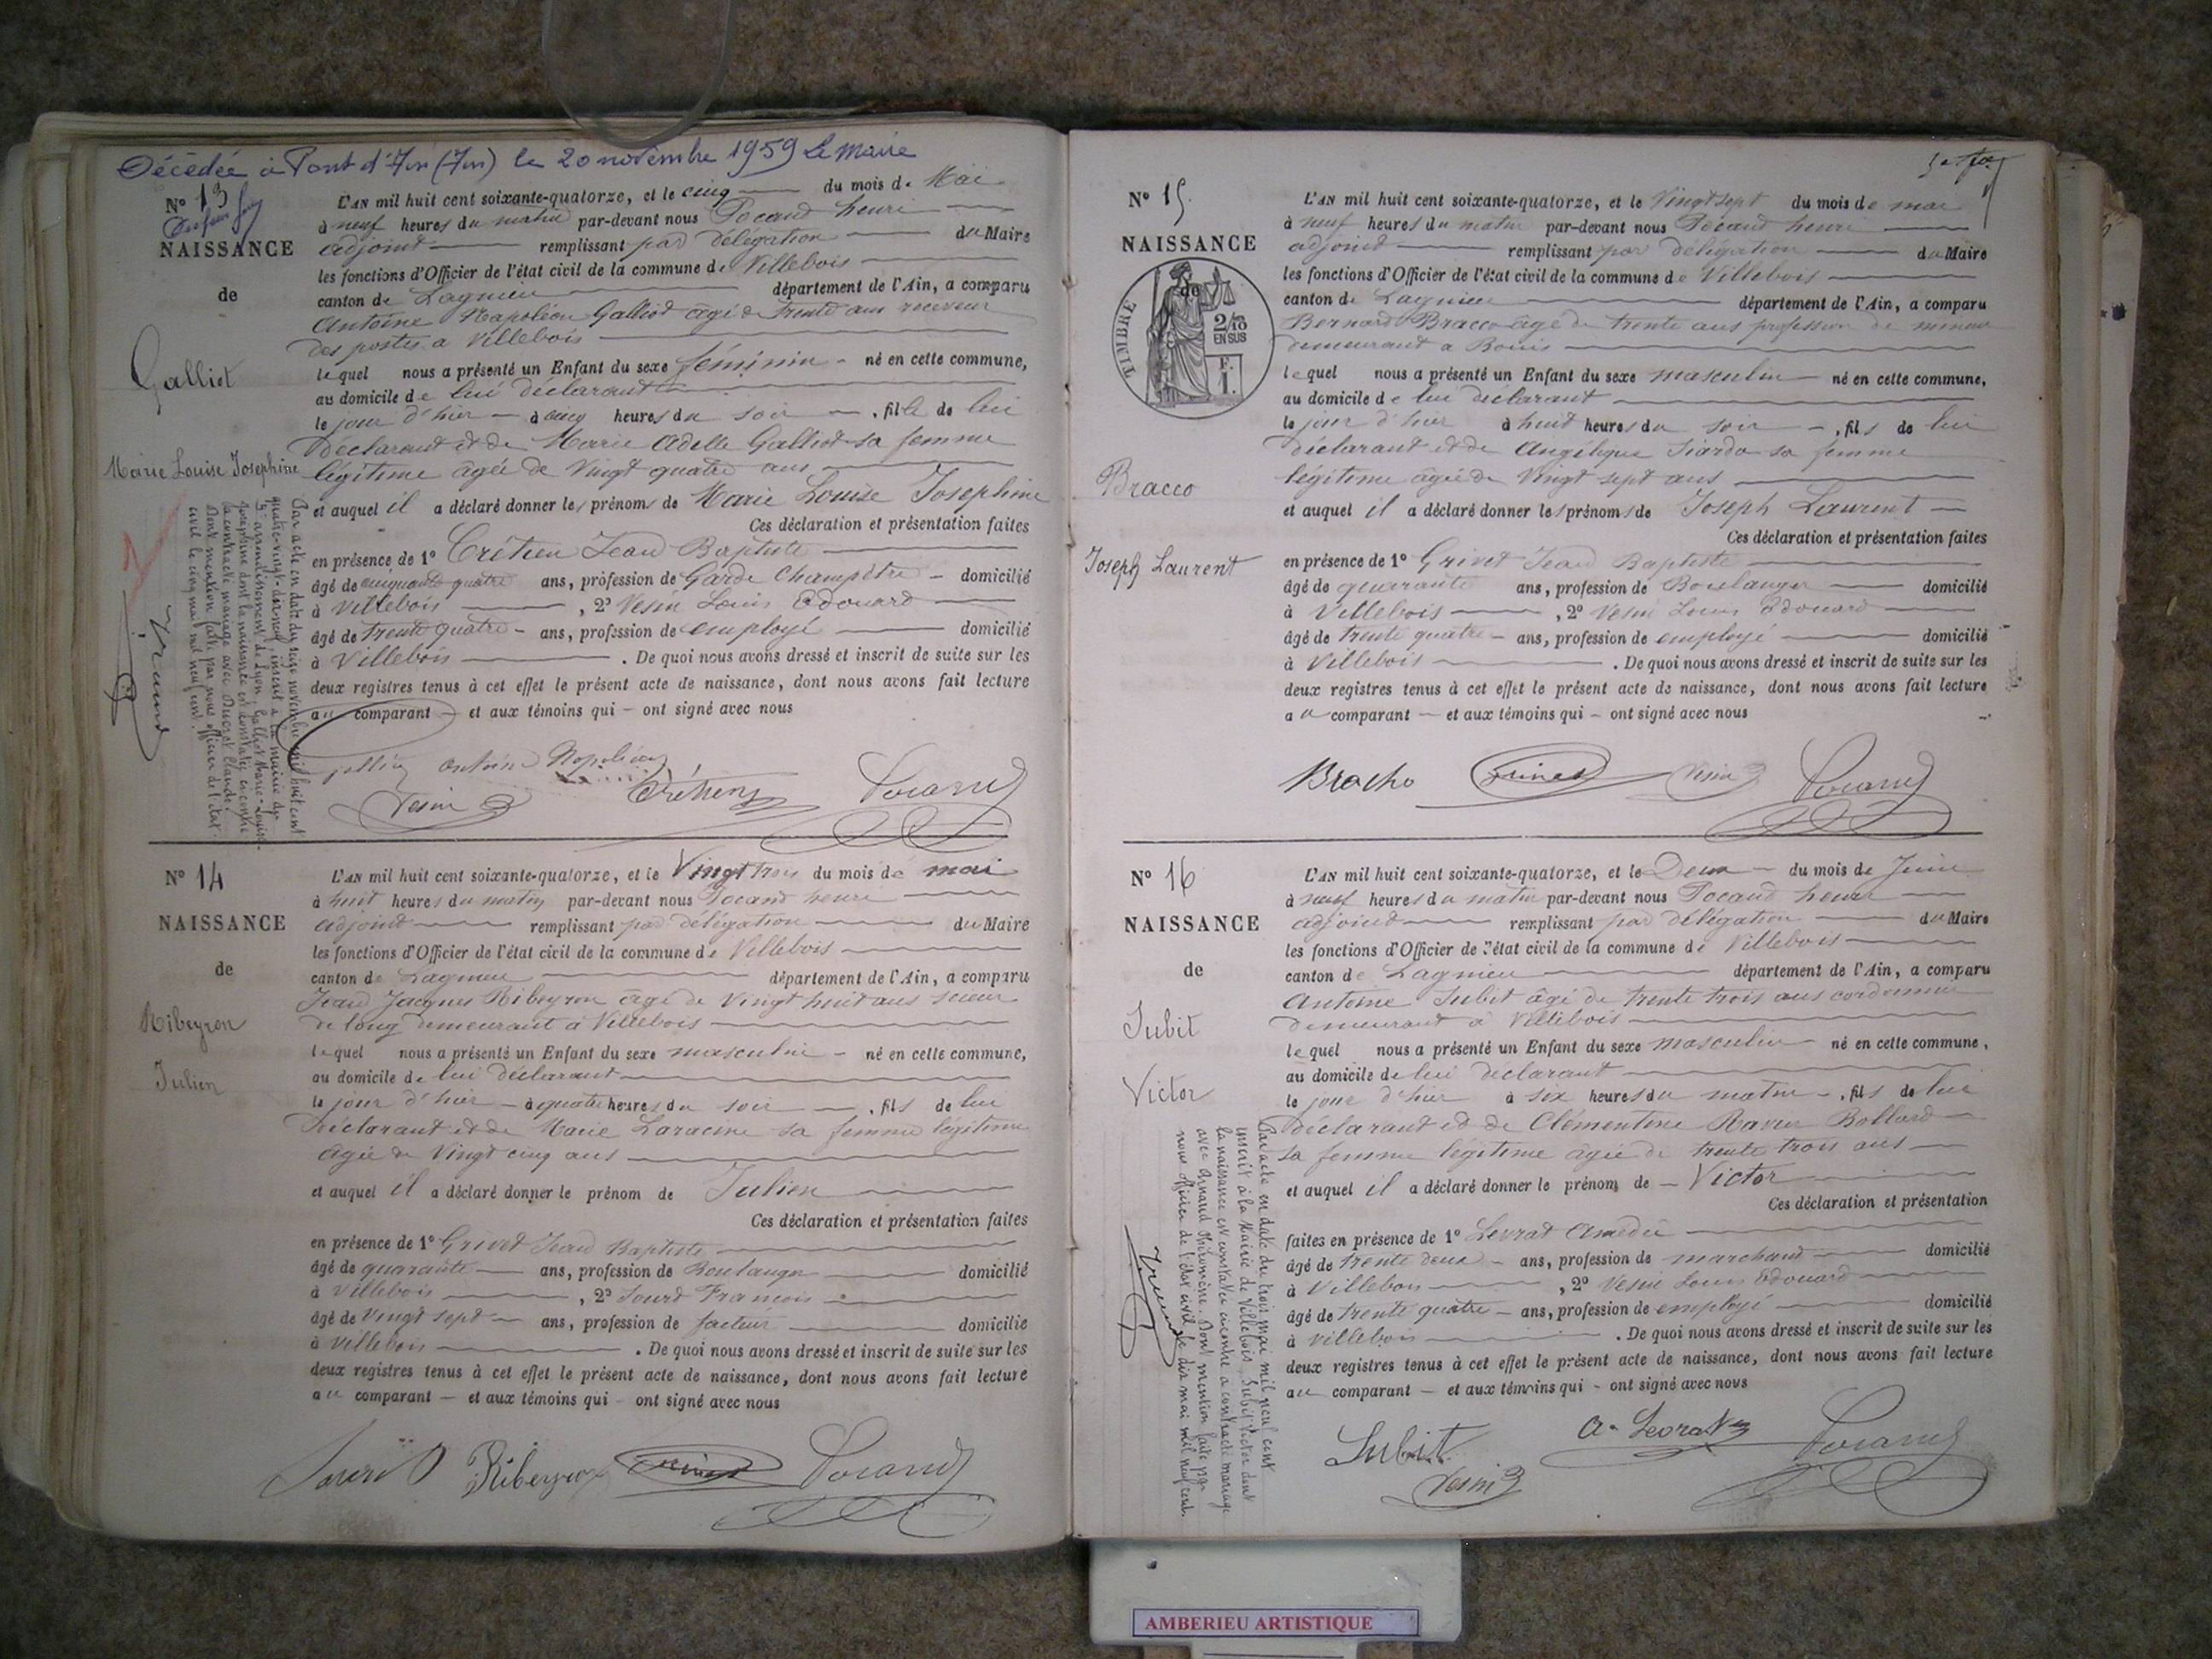 Décédée à Pont d'Ain (Ain) le 20 novembre 1959 Le Maire
N° 13
NAISSANCE
de
Galliot
Marie Louise Josephine
L'AN mil huit cent soixante-quatorze, et le cinq du mois de Mai
à neuf heures du matin par-devant nous Pocand henri
adjoint remplissant par délégation du Maire
les fonctions d'Officier de l'état civil de la commune de Villebois
canton de Lagnieu département de l'Ain, a comparu
Antoine Napoléon Galliot âgé de trente ans receveur
des postes a Villebois
lequel nous a présenté un Enfant du sexe féminin né en cette commune,
au domicile de lui déclarant
le jour d'hier à cinq heures du soir , fille de lui
déclarant et de Marie Adelle Galliot sa femme
légitime âgée de Vingt quatre ans
et auquel il a déclaré donner les prénoms de Marie Louise Josephine
Ces déclaration et présentation faites
en présence de 1° Crétien Jean Baptiste
âgé de cinquante quatre ans, profession de Garde Champêtre domicilié
à Villebois , 2° Vesin Louis Edouard
âgé de trente quatre ans, profession de employé domicilié
à Villebois . De quoi nous avons dressé et inscrit de suite sur les
deux registres tenus à cet effet le présent acte de naissance, dont nous avons fait lecture
au comparant et aux témoins qui ont signé avec nous
Antoine Napoléon
Vesin Crétien Pocand
Par acte en date du seize novembre mil huit cent
quatre-vingt-dix-neuf, inscrit à la mairie du
arrondissement de Lyon, Galliot Marie-Louise-
Joséphine dont la naissance est constatée ci-contre
a contracté mariage avec Ducret Claude.
Dont mention faite par nous officier de l'état
civil le cinq mai mil neuf cent.
N° 14
NAISSANCE
de
Ribeyron
Julien
L'AN mil huit cent soixante-quatorze, et le Vingt trois du mois de mai
à huit heures du matin par-devant nous Pocand henri
adjoint remplissant par délégation du Maire
les fonctions d'Officier de l'état civil de la commune de Villebois
canton de Lagnieu département de l'Ain, a comparu
Jean Jacques Ribeyron âgé de Vingt huit ans scieur
de long demeurant à Villebois
lequel nous a présenté un Enfant du sexe masculin né en cette commune,
au domicile de lui déclarant
le jour d'hier à quatre heures du soir , fils de lui
déclarant et de Marie Laracine sa femme légitime
âgée de Vingt cinq ans
et auquel il a déclaré donner le prénom de Julien
Ces déclaration et présentation faites
en présence de 1° Grivet Jean Baptiste
âgé de quarante ans, profession de Boulanger domicilié
à Villebois , 2° Sourd François
âgé de Vingt sept ans, profession de facteur domicilié
à Villebois . De quoi nous avons dressé et inscrit de suite sur les
deux registres tenus à cet effet le présent acte de naissance, dont nous avons fait lecture
au comparant et aux témoins qui ont signé avec nous
Sourd Ribeyron Grivet Pocand
N° 15
NAISSANCE
de
TIMBRE
2/10
EN SUS
F.
1.
Bracco
Joseph Laurent
L'AN mil huit cent soixante-quatorze, et le Vingt sept du mois de mai
à neuf heures du matin par-devant nous Pocand henri
adjoint remplissant par délégation du Maire
les fonctions d'Officier de l'état civil de la commune de Villebois
canton de Lagnieu département de l'Ain, a comparu
Bernard Bracco âgé de trente ans profession de mineur
demeurant a Bouis
lequel nous a présenté un Enfant du sexe masculin né en cette commune,
au domicile de lui déclarant
le jour d'hier à huit heures du soir , fils de lui
déclarant et de Angélique Siardo sa femme
légitime âgée de Vingt sept ans
et auquel il a déclaré donner les prénoms de Joseph Laurent
Ces déclaration et présentation faites
en présence de 1° Grivet Jean Baptiste
âgé de quarante ans, profession de Boulanger domicilié
à Villebois , 2° Vesin Louis Edouard
âgé de trente quatre ans, profession de employé domicilié
à Villebois . De quoi nous avons dressé et inscrit de suite sur les
deux registres tenus à cet effet le présent acte de naissance, dont nous avons fait lecture
au comparant et aux témoins qui ont signé avec nous
Bracho Grivet Vesin Pocand
N° 16
NAISSANCE
de
Subit
Victor
L'AN mil huit cent soixante-quatorze, et le Deux du mois de Juin
à neuf heures du matin par-devant nous Pocand henri
adjoint remplissant par délégation du Maire
les fonctions d'Officier de l'état civil de la commune de Villebois
canton de Lagnieu département de l'Ain, a comparu
Antoine Subit âgé de trente trois ans cordonnier
demeurant à Villebois
lequel nous a présenté un Enfant du sexe masculin né en cette commune,
au domicile de lui déclarant
le jour d'hier à six heures du matin , fils de lui
déclarant et de Clémentine Ravier Bollard
sa femme légitime âgée de trente trois ans
et auquel il a déclaré donner le prénom de Victor
Ces déclaration et présentation
faites en présence de 1° Levrat Amédée
âgé de trente deux ans, profession de marchand domicilié
à Villebois , 2° Vesin Louis Edouard
âgé de trente quatre ans, profession de employé domicilié
à Villebois . De quoi nous avons dressé et inscrit de suite sur les
deux registres tenus à cet effet le présent acte de naissance, dont nous avons fait lecture
au comparant et aux témoins qui ont signé avec nous
Subit A. Levrat
Vesin Pocand
Par acte en date du trois mai mil neuf cent
inscrit à la Mairie de Villebois, Subit Victor dont
la naissance est constatée ci-contre a contracté mariage
avec Philomène. Dont mention faite par
nous officier de l'état civil, le dix mai mil neuf cent.
AMBERIEU ARTISTIQUE